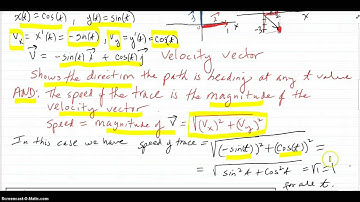 x(t) = cos(t), y(t) = sin(t)
Vx = x'(t) = -sin(t), Vy = y'(t) = cos(t)
V = -sin(t) i + cos(t) j Velocity vector
Shows the direction the path is heading at any t value
AND: The speed of the trace is the magnitude of the
velocity vector
Speed = magnitude of V = √(Vx)² + (Vy)²
In this case we have speed of trace = √(-sin(t))² + (cos(t))²
= √sin²t + cos²t = √1 = 1
for all t.
Screencast-O-Matic.com